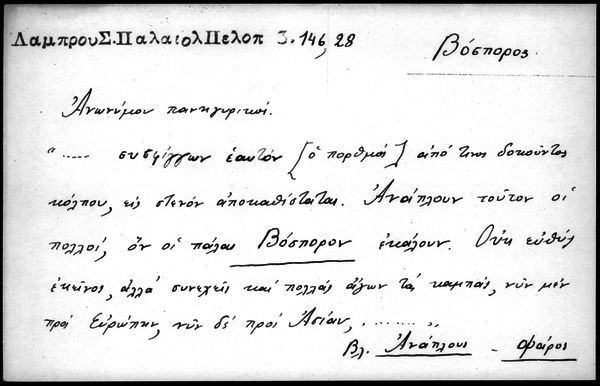 ΛαμπρουΣ.ΠαλαιολΠελοπ 3. 146, 28
Βόσπορος
Ἀνωνύμου πανηγυρικοί.
"..... συσφίγγων ἑαυτόν [ὁ πορθμός] ἀπό τινος δοκοῦντος
κόλπου, εἰς στενόν ἀποκαθίσταται. Ἀνάπλουν τοῦτον οἱ
πολλοί, ὅν οἱ πάλαι Βόσπορον ἐκάλουν. Οὐκ εὐθύς
ἐκεῖνος, ἀλλά συνεχεῖς καί πολλάς ἄγων τάς καμπάς, νῦν μέν
πρός Εὐρώπην, νῦν δέ πρός Ἀσίαν, ........ "
Βλ. Ἀνάπλους - Φάρος